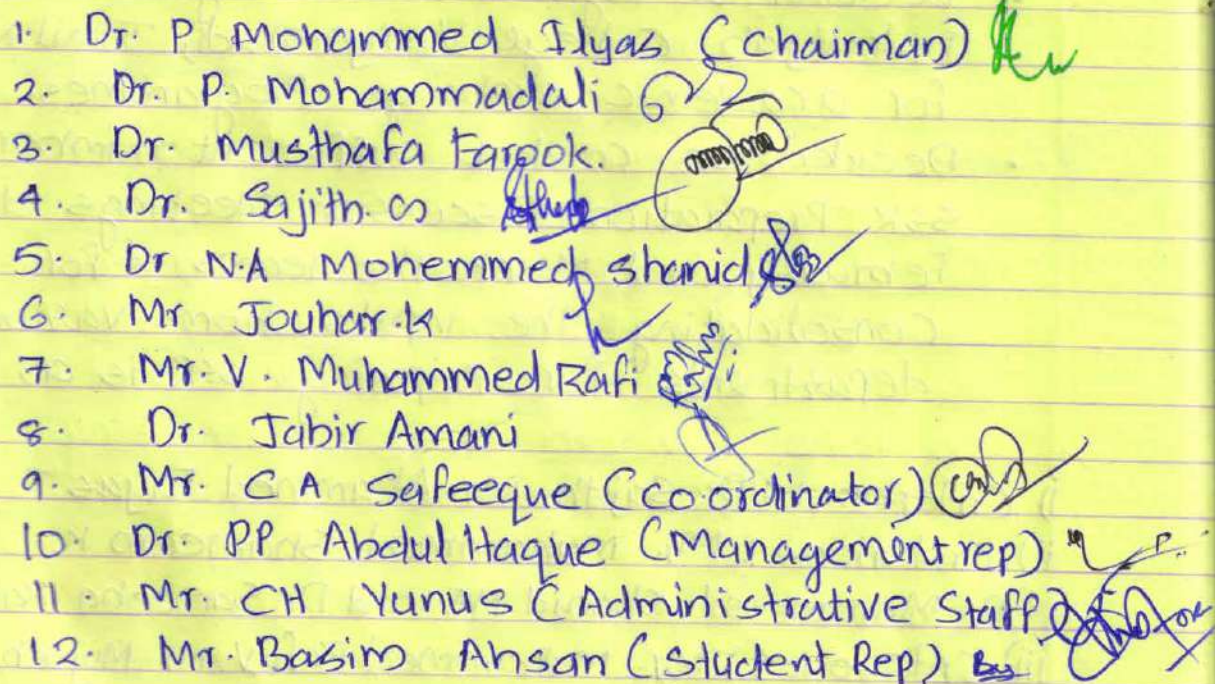 1. Dr. P Mohammed Ilyas (chairman)
2. Dr. P. Mohammadali
3. Dr. Musthafa Farook.
4. Dr. Sajith.
5. Dr N.A Mohemmed shahid
6. Mr Jouhar.k
7. Mr. V. Muhammed Rafi
8. Dr. Jabir Amani
9. Mr. C A Safeeque (co.ordinator)
10. Dr. PP Abdul Haque (Management rep)
11. Mr. CH Yunus (Administrative Staff)
12. Mr. Basim Ahsan (student Rep)